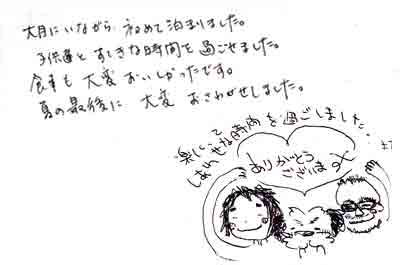 大月にいながら、初めて泊まりました。
子供達とすてきな時間を過ごせました。
食事も大変おいしかったです。
夏の最後に、大変おさわがせしました。
楽しくて
しあわせな時間を過ごしました。
ありがとう
ございます